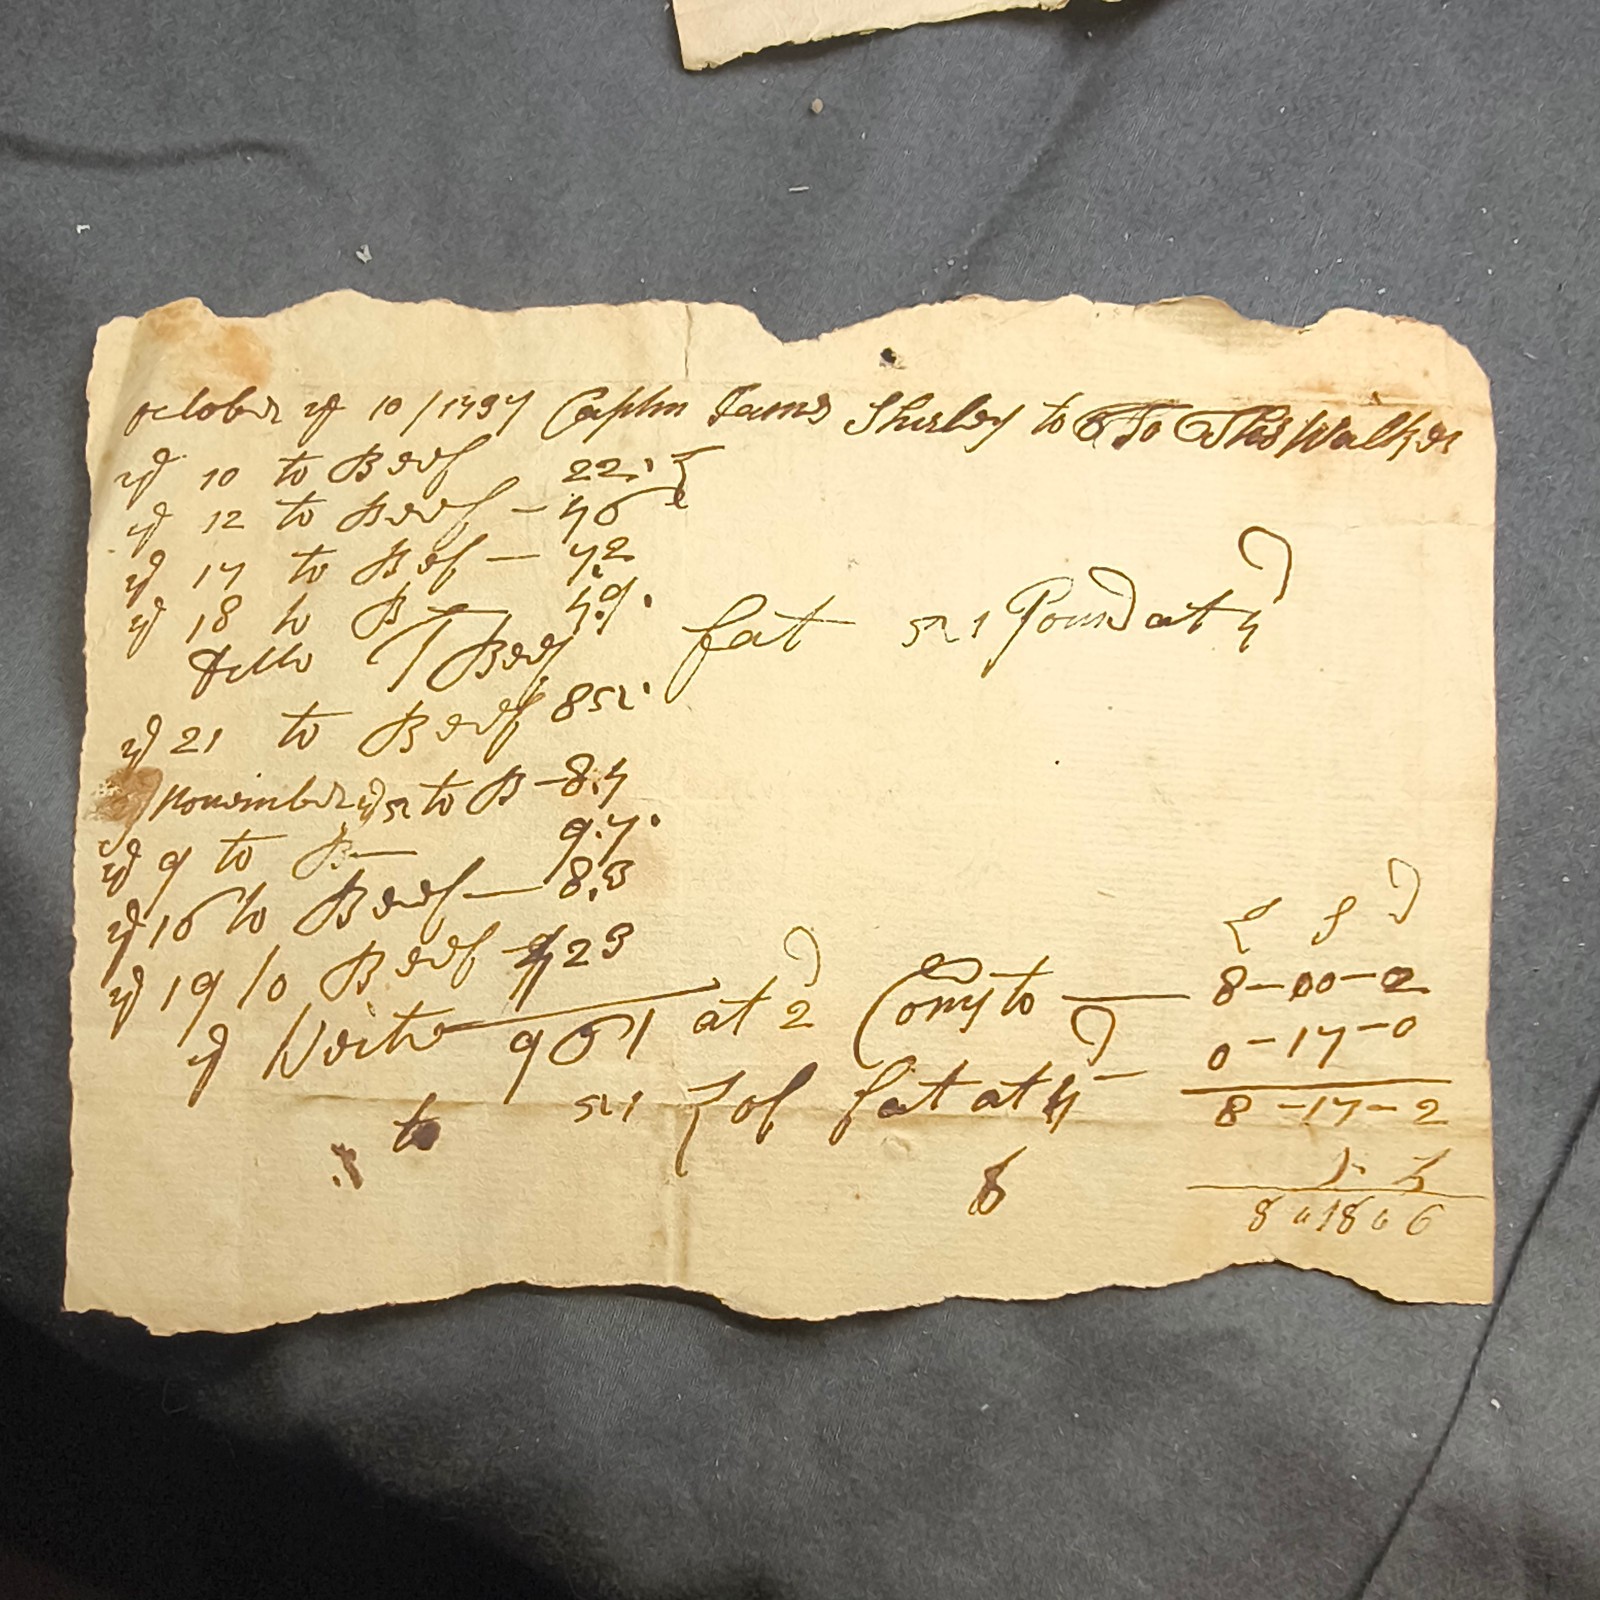 october ye 10/1737 Captn James Shirley to To Thos Walker
ye 10 to Beef 22 : ℔
ye 12 to Beef – 46
ye 17 to Bef – 72
ye 18 to B– 49.
ditto Beef fat 51 Pound at 4d
ye 21 to Beeff 85.
November ye 5 to B – 8.4
ye 9 to B– 9.7.
ye 16 to Beef – 8.3
ye 19 to Beef 423
£ S D
ye Neite 961 at 2d Coms to — 8–00–2
51 ℔ of fat at 4d – 0–17–0
8–17–2
to
8 " 18 " 6